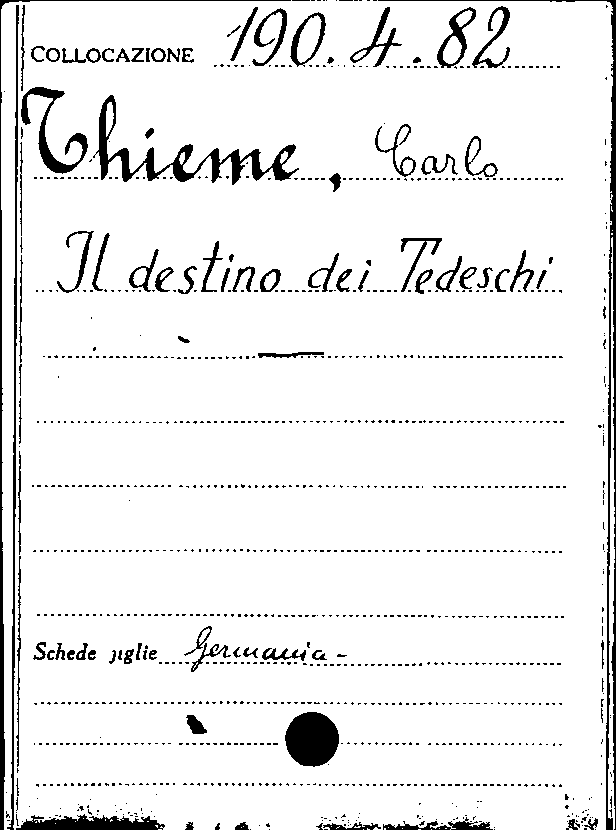 COLLOCAZIONE 190.4.82
Thieme, Carlo
Il destino dei Tedeschi
Schede figlie Germania -